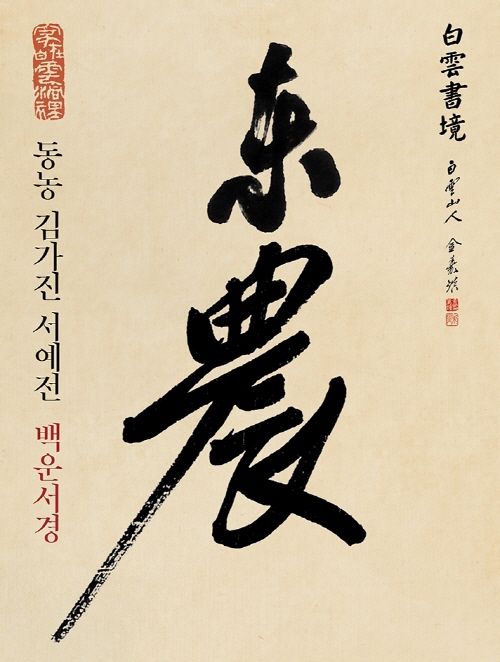 白雲書境
白雲山人 金
東農
동농 김가진 서예전 백운서경